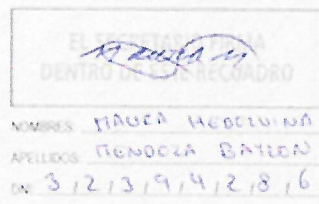 EL SECRETARIO FIRMA
DENTRO DE ESTE RECUADRO
NOMBRES: MAURA
APELLIDOS: MENDOZA BAYLON
DNI: 3 2 3 9 4 2 8 6